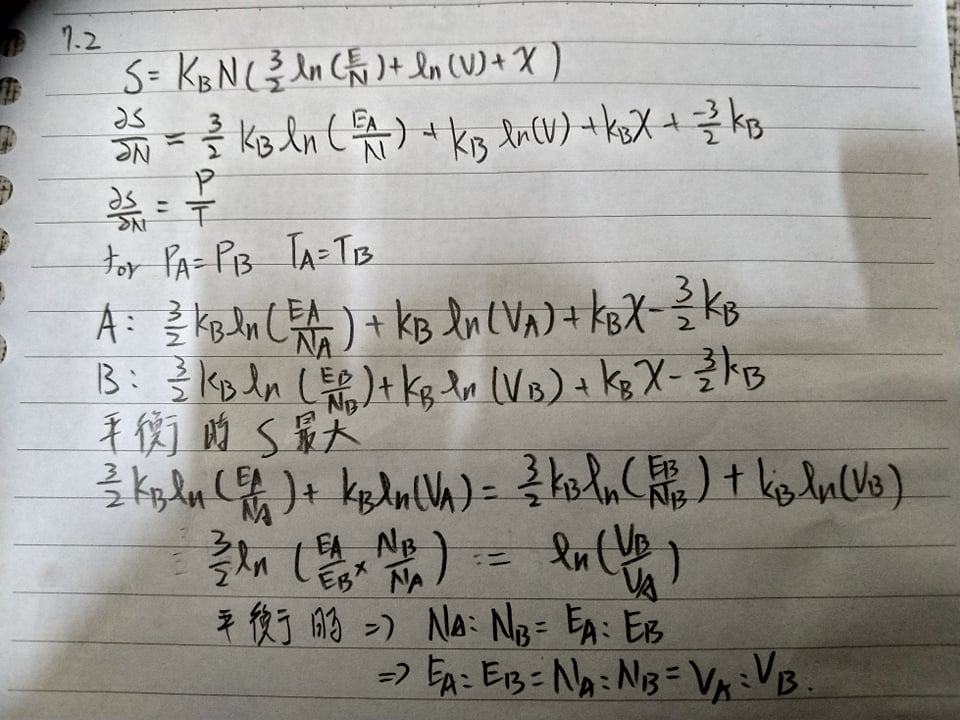 7.2
S = K_B N ( 3/2 ln ( E/N ) + ln (V) + X )
∂S/∂N = 3/2 k_B ln ( E_A/N ) + k_B ln(V) + k_B X + -3/2 k_B
∂S/∂N = P/T
for P_A = P_B T_A = T_B
A: 3/2 k_B ln ( E_A/N_A ) + k_B ln (V_A) + k_B X - 3/2 k_B
B: 3/2 k_B ln ( E_B/N_B ) + k_B ln (V_B) + k_B X - 3/2 k_B
平衡時 S 最大
3/2 k_B ln ( E_A/N_A ) + k_B ln(V_A) = 3/2 k_B ln ( E_B/N_B ) + k_B ln(V_B)
3/2 ln ( E_A/E_B × N_B/N_A ) = ln ( V_B/V_A )
平衡時 => N_A : N_B = E_A : E_B
=> E_A : E_B = N_A : N_B = V_A : V_B.